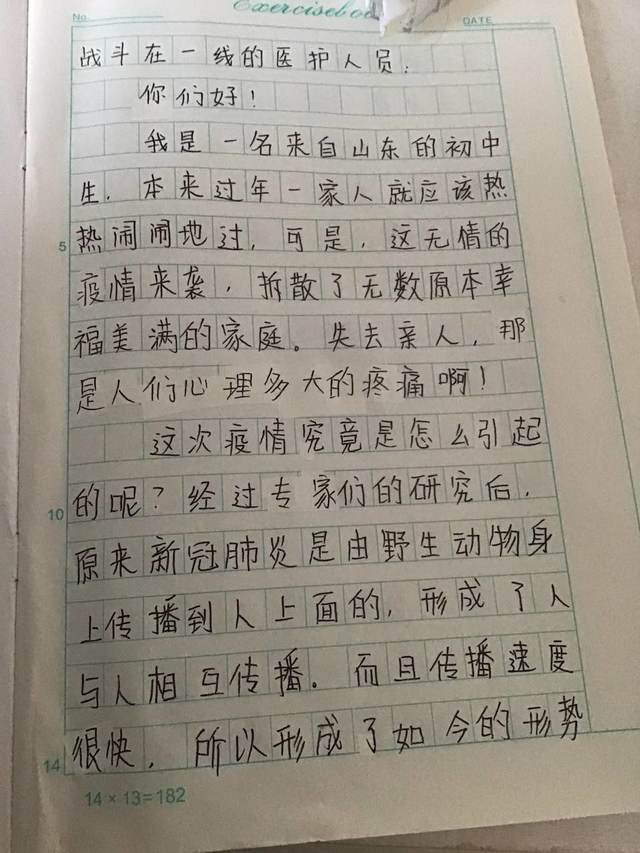 No.
Exercisebo
DATE
战斗在一线的医护人员：
你们好！
我是一名来自山东的初中
生，本来过年一家人就应该热
5
热闹闹地过，可是，这无情的
疫情来袭，拆散了无数原本幸
福美满的家庭。失去亲人，那
是人们心理多大的疼痛啊！
这次疫情究竟是怎么引起
10
的呢？经过专家们的研究后，
原来新冠肺炎是由野生动物身
上传播到人上面的，形成了人
与人相互传播。而且传播速度
14
很快，所以形成了如今的形势
14×13=182